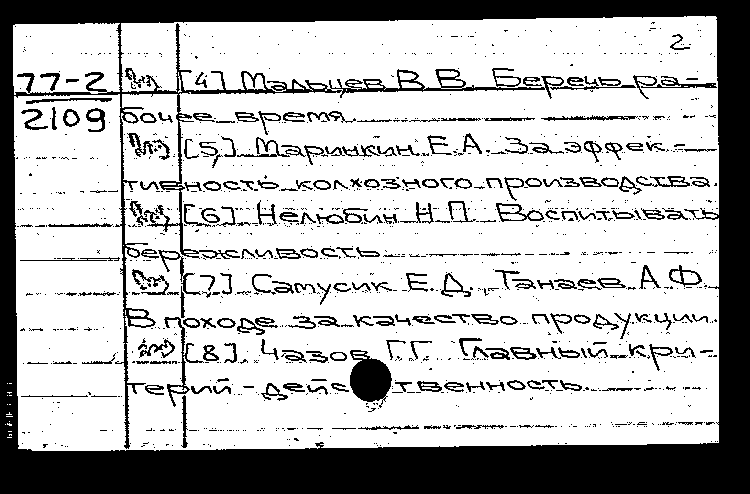 2
77-2 [4] Мальцев В В. Беречь ра-
2109 бочее время.
[5] Маринкин Е.А. За эффек-
тивность колхозного производства.
[6] Нелюбин Н П Воспитывать
бережливость
[7] Сатусик Е.Д., Танаев А Ф
В походе за качество продукции.
[8] Чазов Г.Г. Главный кри-
терий - действенность.